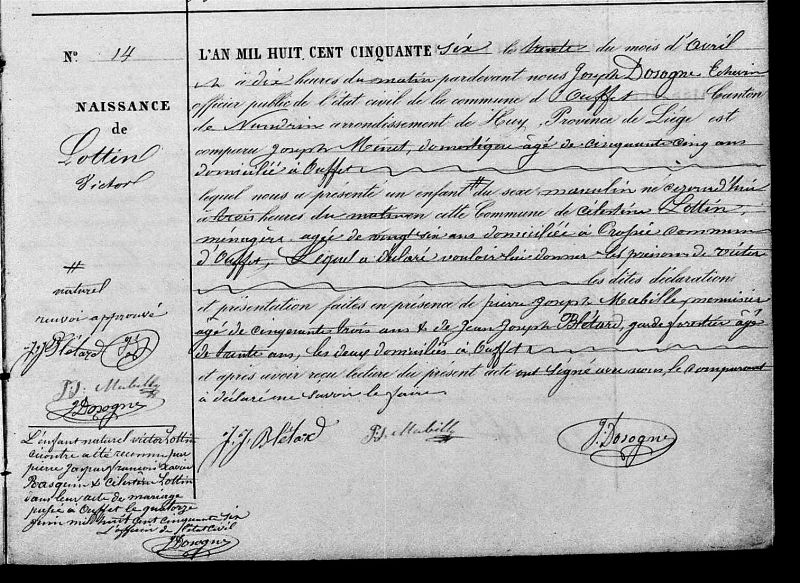 N.° 14
NAISSANCE
de
Lottin
Victor
L'AN MIL HUIT CENT CINQUANTE six le trente du mois d'avril
à dix heures du matin pardevant nous Joseph Dosogne Echevin
officier public de l'état civil de la commune d'Ouffet, Canton
de Nandrin arrondissement de Huy, Province de Liége est
comparu Joseph Minet, domestique âgé de cinquante cinq ans
domicilié à Ouffet
lequel nous a présenté un enfant # du sexe masculin né cejourd'hui
à trois heures du matin en cette Commune de Célestine Lottin,
ménagère agée de vingt six ans domiciliée à commune
d'Ouffet, Lequel a déclaré vouloir lui donner les prénoms de victor
les dites déclaration
et présentation faites en présence de pierre Joseph Mabille, menuisier
agé de cinquante trois ans & de Jean Joseph Blétard, garde forestier âgé
de trente ans, les deux domiciliés à Ouffet
et après avoir reçu lecture du présent acte ont signé avec nous, le comparant
à déclaré ne savoir le faire
J. J. Blétard P. J. Mabille J. Dosogne
#
naturel
renvoi approuvé
J. J. Blétard
P. J. Mabille
J. Dosogne
L'enfant naturel victor Lottin
cicontre a été reconnu par
pierre Jaspar françois Xavier
Basquin & Célestine Lottin
dans leur acte de mariage
passé à Ouffet le quatorze
juin mil huit cent cinquante six
L'officier de l'état civil
J. Dosogne